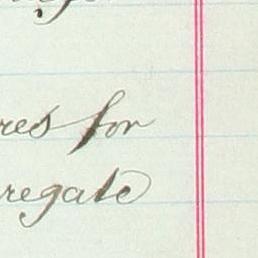 res for
regate